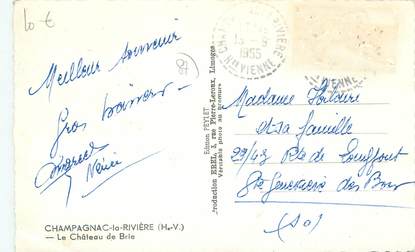 10 €
Meilleur souvenir
Gros baisers
Marcel
CHAMPAGNAC-la-RIVIÈRE (Hte-V.)
— Le Château de Brie
Edition PEYLET
Production EREL, 3, rue Pierre-Leroux, Limoges
Véritable photo au bromure
1955
Hte VIENNE
Madame
et sa famille
29/43 Rte de
Ste Geneviève des Bois
(S O)